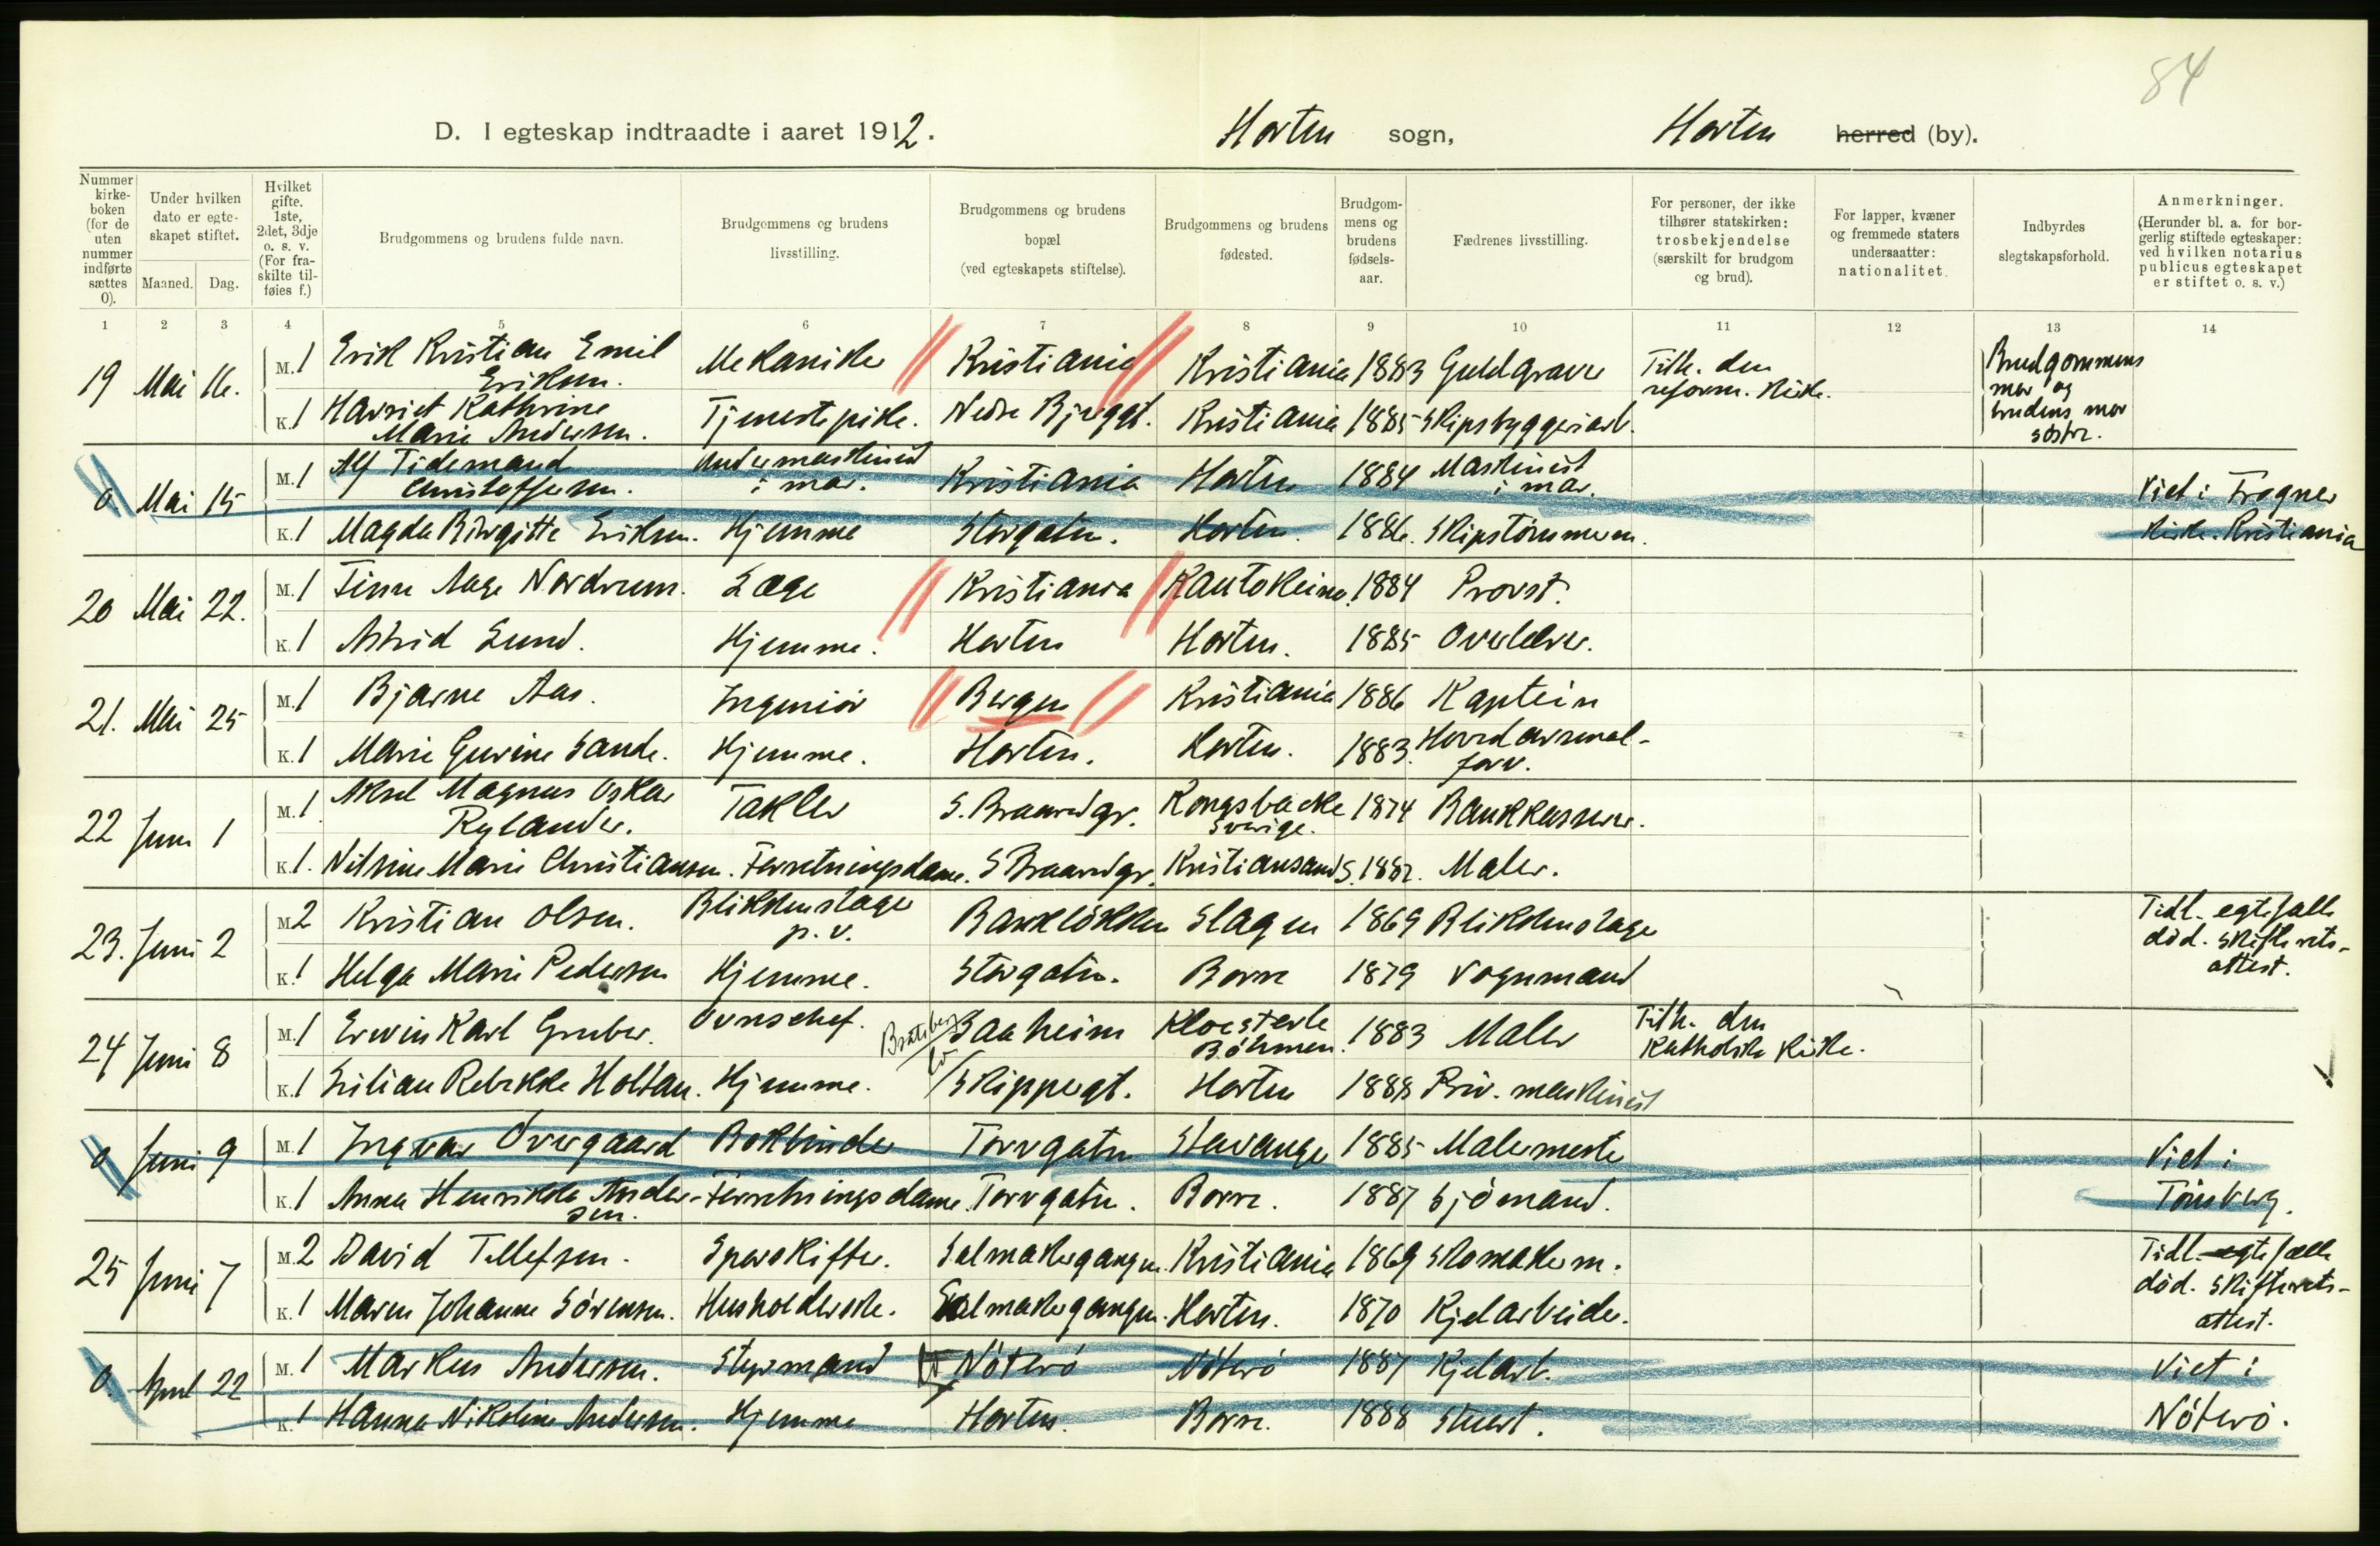 84
D. I egteskap indtraadte i aaret 1912. Horten sogn, Horten herred (by).
Nummer kirke-boken (for de uten nummer indførte sættes 0).
Under hvilken dato er egte-skapet stiftet.
Maaned. Dag.
Hvilket gifte. 1ste, 2det, 3dje o. s. v. (For fra-skilte til-føies f.)
Brudgommens og brudens fulde navn.
Brudgommens og brudens livsstilling.
Brudgommens og brudens bopæl (ved egteskapets stiftelse).
Brudgommens og brudens fødested.
Brudgom-mens og brudens fødsels-aar.
Fædrenes livsstilling.
For personer, der ikke tilhører statskirken: trosbekjendelse (særskilt for brudgom og brud).
For lapper, kvæner og fremmede staters undersaatter: nationalitet.
Indbyrdes slegtskapsforhold.
Anmerkninger. (Herunder bl. a. for bor-gerlig stiftede egteskaper: ved hvilken notarius publicus egteskapet er stiftet o. s. v.)
1 2 3 4 5 6 7 8 9 10 11 12 13 14
19 Mai 16. M. 1 Erik Kristian Emil Eriksen. Mekaniker Kristiania Kristiania 1883 Guldgraver Tilh. den reform. Kirke. Brudgommens mor og brudens mor søstre.
K. 1 Harriet Kathrine Marie Andersen. Tjenestepike. Nedre Bjergt. Kristiania 1885 Skipsbyggeriarb.
0. Mai 15 M. 1 Alf Tidemand Christoffersen. Undermaskinist i mar. Kristiania Horten 1884 Maskinist i mar. Viet i Frogner
K. 1 Magda Birgitte Eriksen. Hjemme Storgaten. Horten. 1886. Skipstømmerm. Kirke. Kristiania
20 Mai 22. M. 1 Finn Aage Nordrum. Læge Kristiania Kautokeino. 1884 Provst.
K. 1 Astrid Lund. Hjemme. Horten Horten. 1885 Overlærer.
21. Mai 25 M. 1 Bjarne Aas. Ingeniør Bergen Kristiania 1886 Kaptein
K. 1 Marie Gurine Sande. Hjemme. Horten. Horten. 1883. Hovedarsenal-forv.
22 Juni 1 M. 1 Aksel Magnus Oskar Rylander. Takler S. Braarudgr. Kongsbacke Sverige. 1874 Bankkasserer.
K. 1. Nilsine Marie Christiansen. Forretningsdame. S Braarudgr. Kristiansand S. 1882. Maler.
23. Juni 2 M. 2 Kristian Olsen. Blikkenslager p. v. Bankløkken Slagen 1869 Blikkenslager Tidl. egtefælle død. Skifterets-attest.
K. 1 Helga Marie Pedersen Hjemme. Storgaten. Borre 1879 Vognmand
24 Juni 8 M. 1 Erwin Karl Gruber. Ovnschef. Bratsberg Saaheim Kloesterle Böhmen. 1883 Maler Tilh. den Katholske Kirke.
K. 1 Lilian Rebekke Holtan. Hjemme. Skippergt. Horten 1888 Priv. maskinist
0 Juni 9 M. 1 Ingvar Overgaard Bokbinder Torvgaten Stavanger 1885 Malermester Viet i
K. 1 Anna Henrikke Andersen. Forretningsdame. Torvgaten. Borre. 1887 Sjømand. Tönsberg.
25 Juni 7 M. 2 David Tellefsen. Sporskifter. Salmakergangen. Kristiania 1869 Skomakerm. Tidl. egtefælle død. Skifterets-attest.
K. 1 Maren Johanne Sörensen. Husholderske. Salmakergangen. Horten. 1870 Kjelarbeider.
0. April 22 M. 1 Markus Andersen. Styrmand Nöterö Nöterö 1887 Kjelarb. Viet i
K. 1 Hanna Nikoline Andersen. Hjemme Horten. Borre. 1888 Stuert. Nöterö.